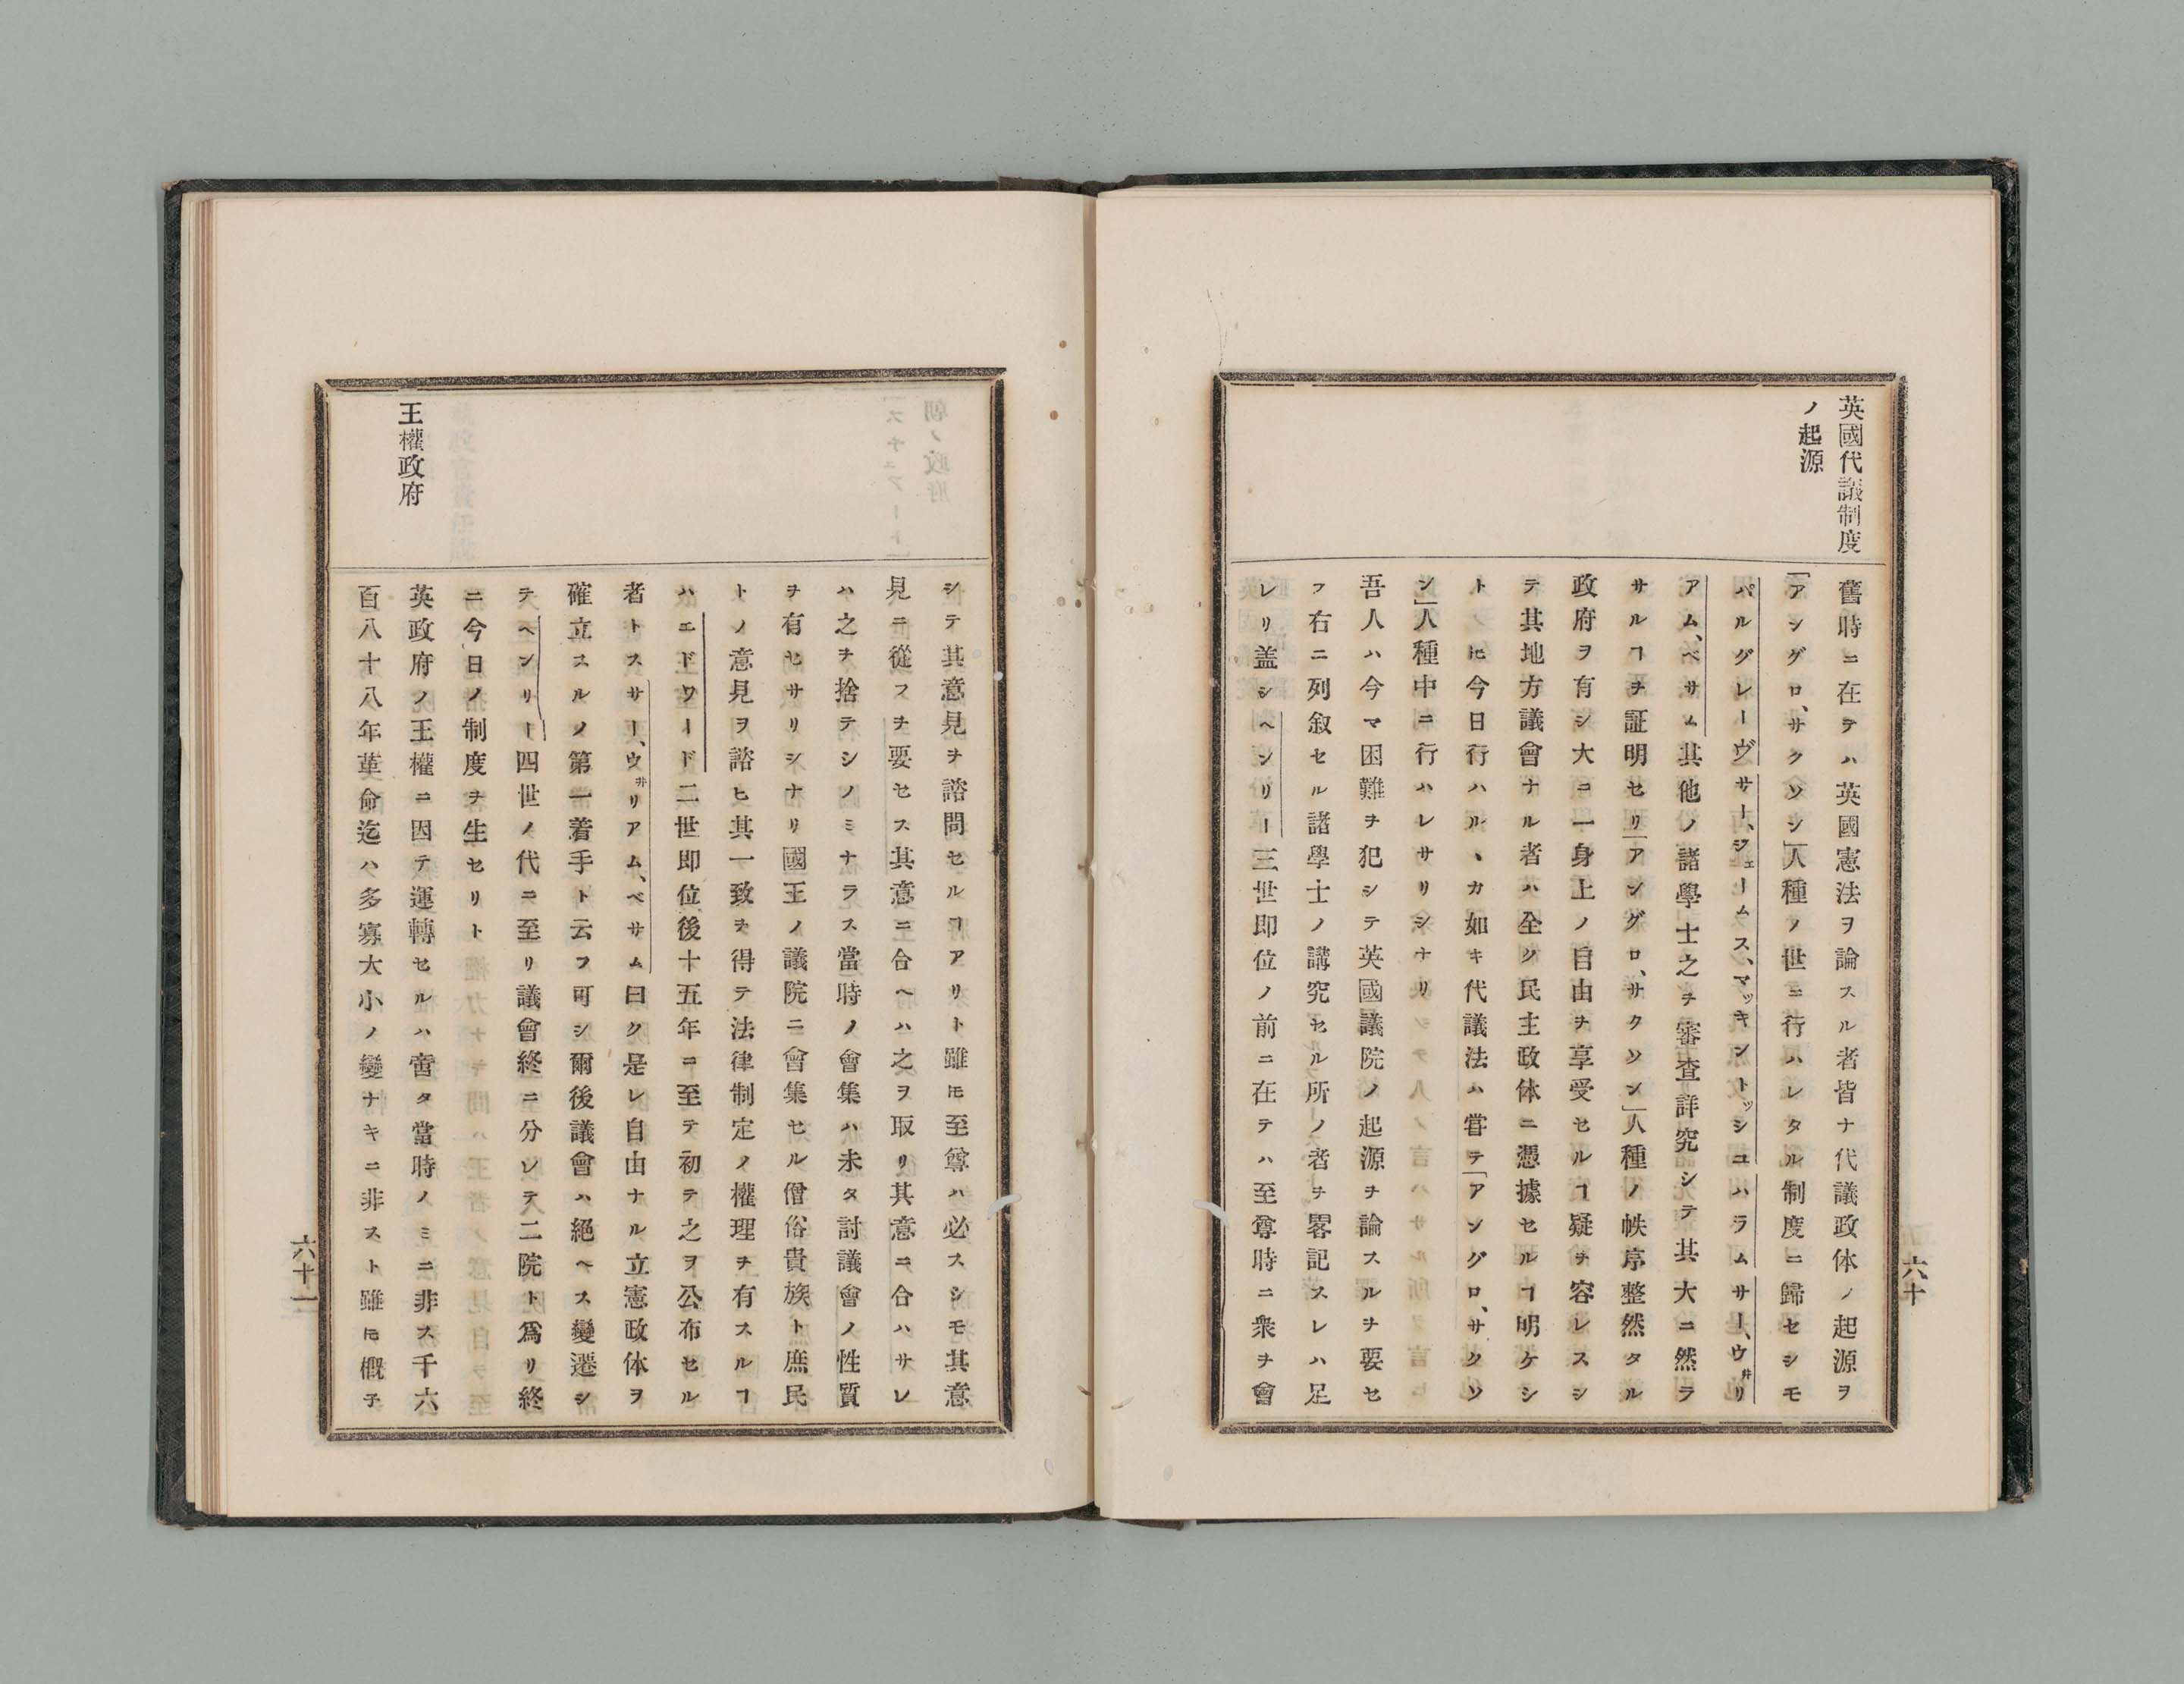 英國代議制度
ノ起源
舊時ニ在テハ英國憲法ヲ論スル者皆ナ代議政体ノ起源ヲ
「アングロ、サクソン」人種ノ世ニ行ハレタル制度ニ歸セシモ
パルグレーヴサー、ジェームス、マッキントッシユハラムサー、ウ井リ
アム、ベサム其他ノ諸學士之ヲ審査詳究シテ其大ニ然ラ
サルヿヲ証明セリ「アングロ、サクソン」人種ノ帙序整然タル
政府ヲ有シ大ニ一身上ノ自由ヲ享受セルヿ疑ヲ容レスシ
テ其地方議會ナル者ハ全ク民主政体ニ憑據セルヿ明ケシ
トシ𪜈今日行ハルヽカ如キ代議法ハ甞テ「アングロ、サクソ
ン」人種中ニ行ハレサリシナリ
吾人ハ今マ困難ヲ犯シテ英國議院ノ起源ヲ論スルヲ要セ
フ右ニ列敘セル諸學士ノ講究セル所ノ者ヲ畧記スレハ足
レリ盖シヘンリー三世即位ノ前ニ在テハ至尊時ニ衆ヲ會
六十
シテ其意見ヲ諮問セルヿアリト雖𪜈至尊ハ必スシモ其意
見ニ從フヲ要セス其意ニ合ヘハ之ヲ取リ其意ニ合ハサレ
ハ之ヲ捨テシノミナラス當時ノ會集ハ未タ討議會ノ性質
ヲ有セサリシナリ國王ノ議院ニ會集セル僧俗貴族ト庶民
トノ意見ヲ諮ヒ其一致ヲ得テ法律制定ノ權理ヲ有スルヿ
ハエドワード二世即位後十五年ニ至テ初テ之ヲ公布セル
者トスサー、ウ井リアム、ベサム曰ク是レ自由ナル立憲政体ヲ
確立スルノ第一着手ト云フ可シ爾後議會ハ絕ヘス變遷シ
テヘンリー四世ノ代ニ至リ議會終ニ分レテ二院ト爲リ終
ニ今日ノ制度ヲ生セリト
王權政府
英政府ノ王權ニ因テ運轉セルハ啻タ當時ノミニ非ス千六
百八十八年革命迄ハ多寡大小ノ變ナキニ非スト雖𪜈概子
六十一